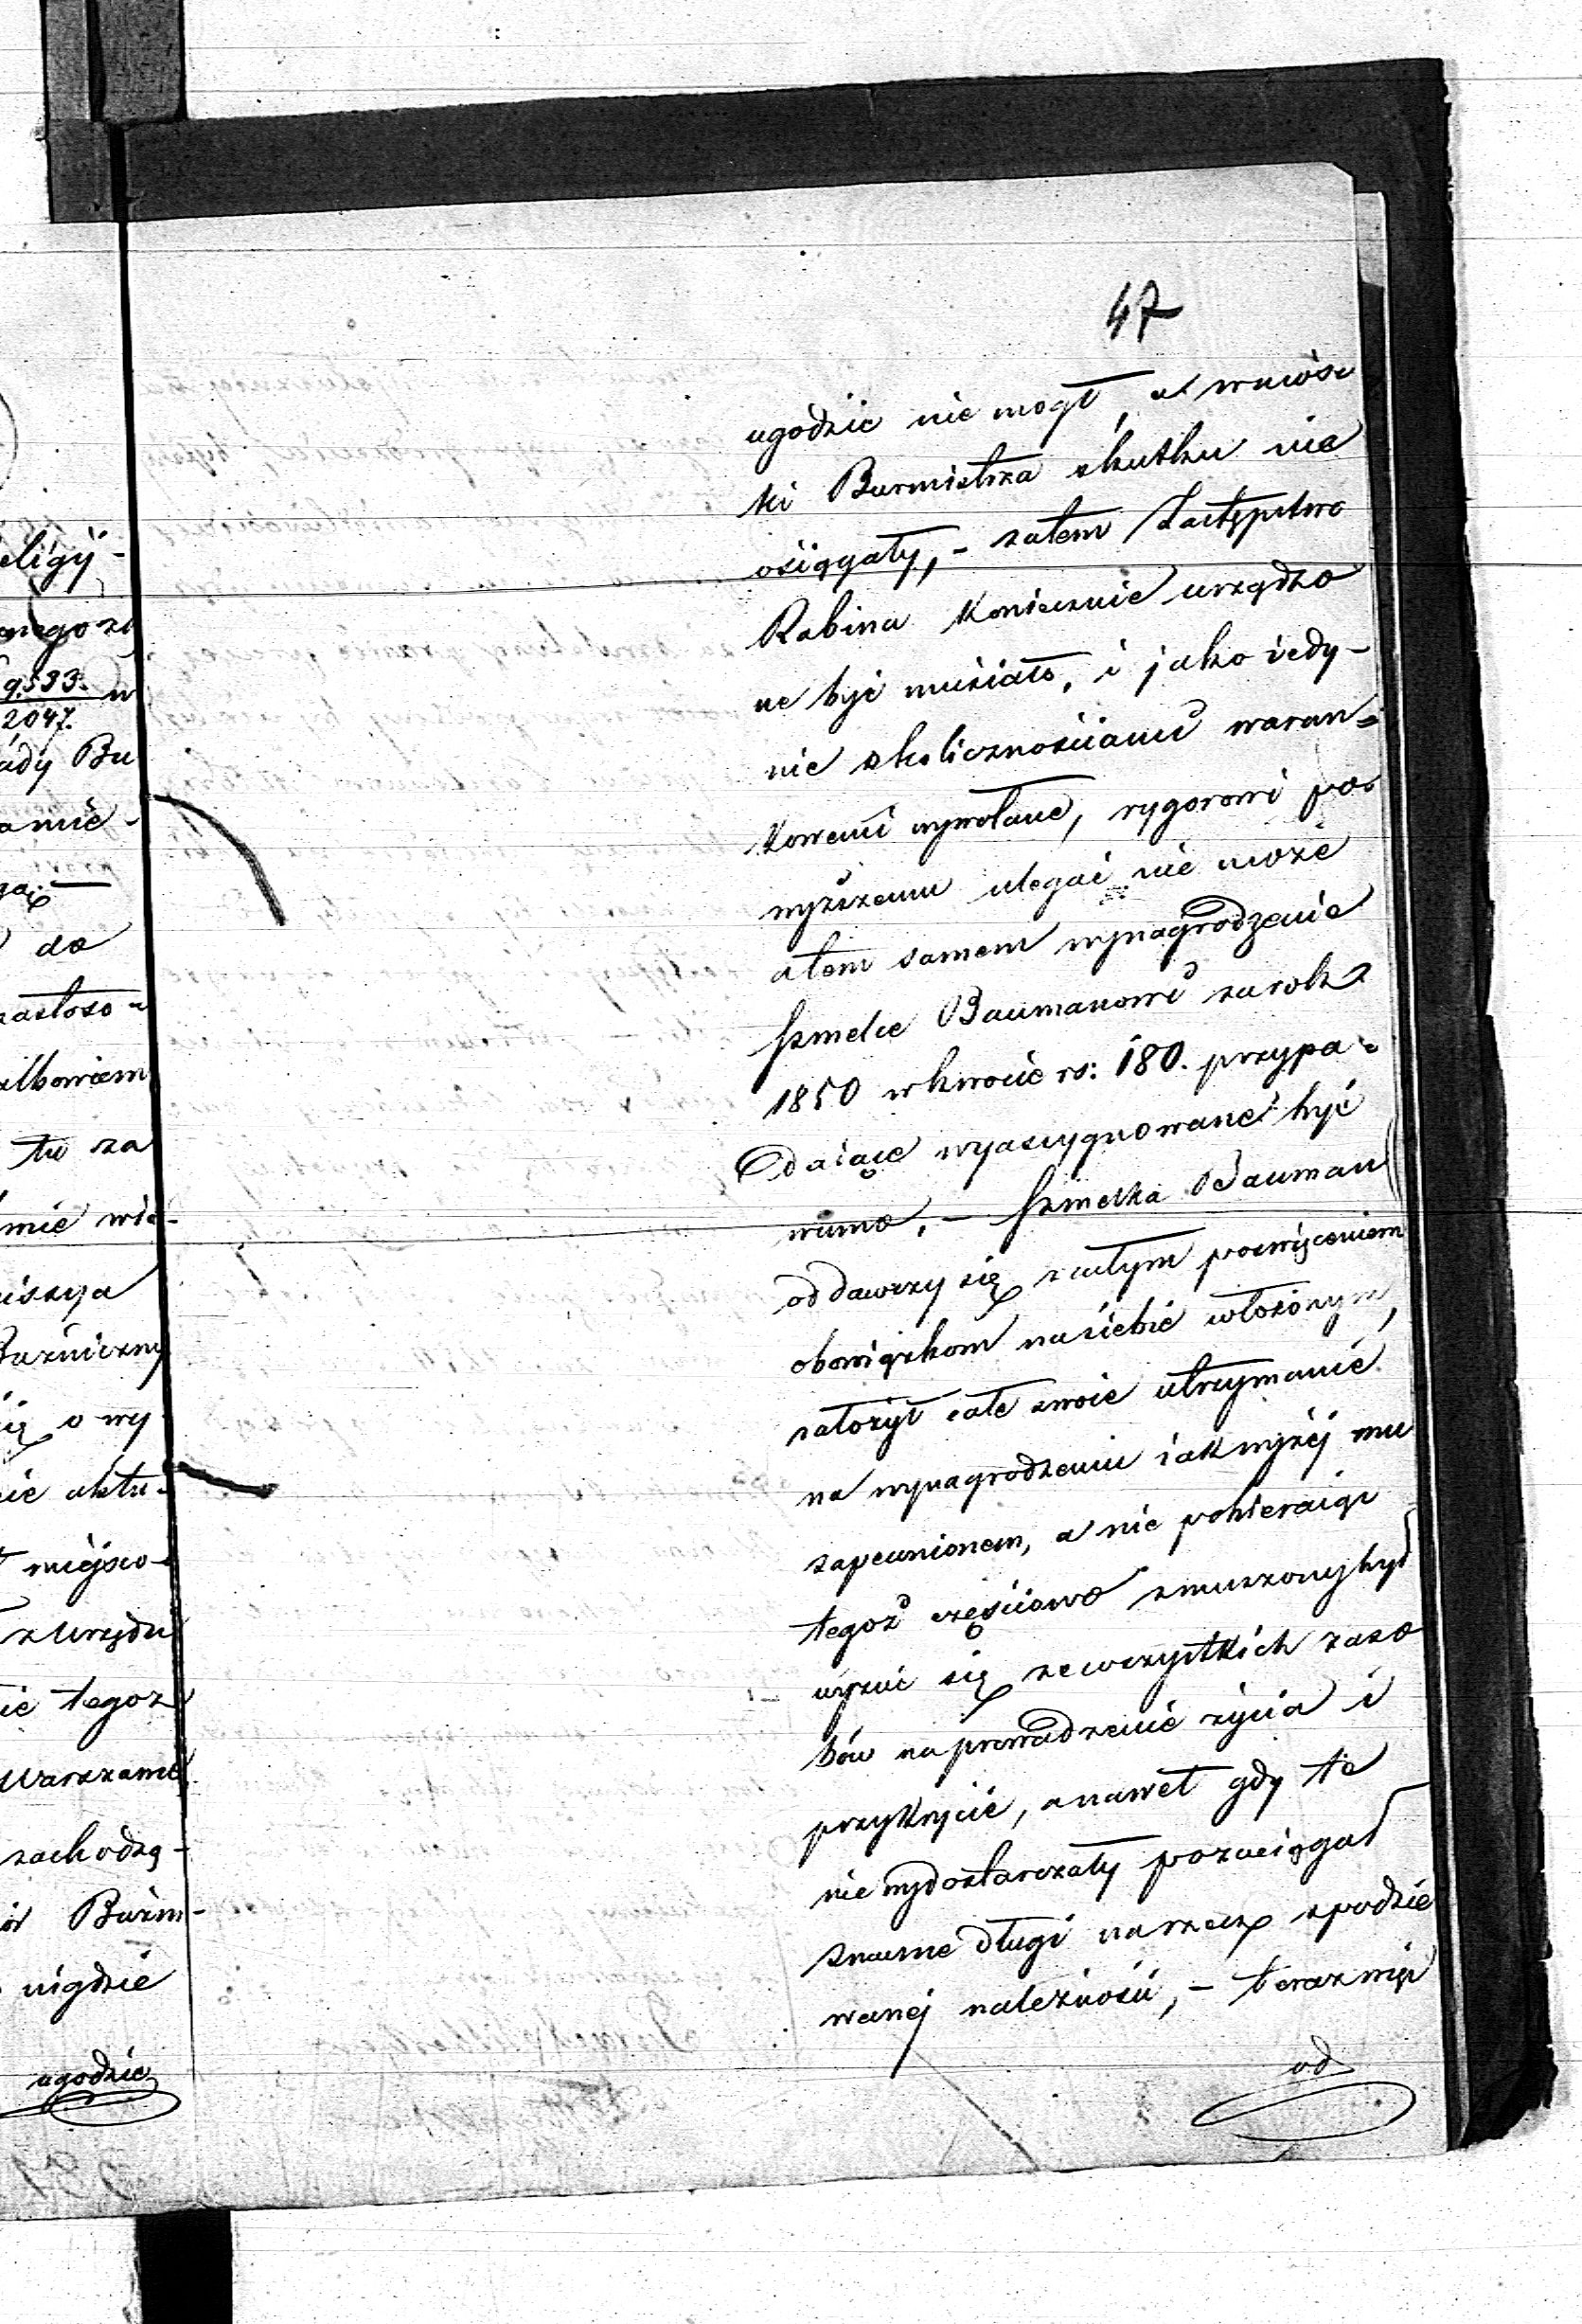 eligij-
anego z
9,533. w
2047.
ády Bu
amie-
do
zastoso-
albowiem
tu za
mie wia-
issya
Buźniczny
się o wy
nie aktu-
miejsco-
z Urzędu
ie tegoż
Warszawie
zachodzą-
Buźni-
nigdzie
ugodzić
47
ugodzić nie mogł, a wniós
ki Burmistrza skutku nie
osięgały, - zatem Zastępstwo
Rabina koniecznie urządzo
ne być musiało, i jako iedy-
nie okolicznościami warun=
kowemi wywołane, rygorowi po
wyższemu ulegać nie może
atem samem wynagrodzenie
Szmelce Baumanowi za rok
1850 w kwocie rs: 180. przypa=
daiące wyasygnowane być
winno, - Szmelka Bauman
oddawszy się z całym poswięceniem
obowiązkom na siebie włożonym,
założył całe swoie utrzymanie
na wynagrodzeniu iak wyżéj mu
zapewnionem, a nie pobieraiąc
tegoż częściowo zmuszony był
wyzuć się ze wszystkich zaso
bów na prowadzenie życia i
przykrycie, a nawet gdy te
nie wydostarczały pozaciągał
znaczne długi na rzecz spodzie
wanéj należności, - teraz więc
od